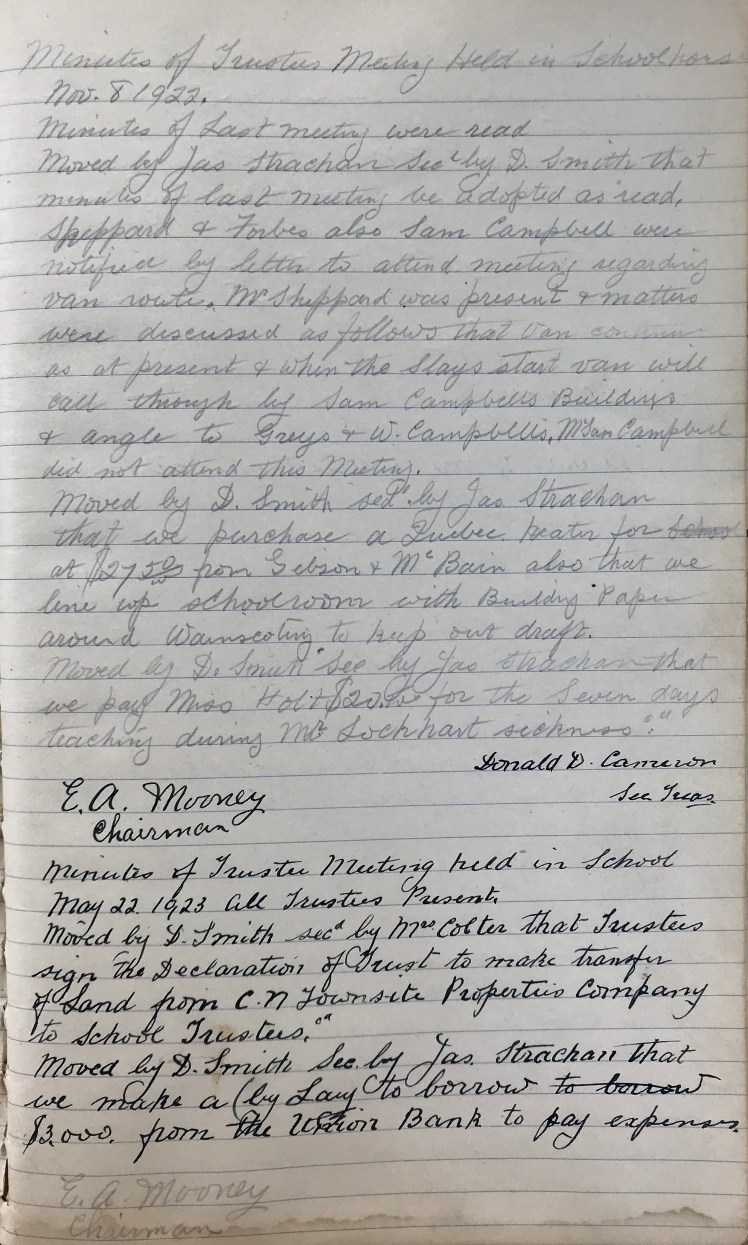 Minutes of Trustees Meeting Held in Schoolhous
Nov. 8 1922.
Minutes of Last meeting were read
Moved by Jas Strachan Secd by D. Smith that
minutes of last meeting be adopted as read.
Sheppard & Forbes also Sam Campbell were
notified by letter to attend meeting regarding
van route. Mr Sheppard was present & matters
were discussed as follows that Van continue
as at present & when the Slays start van will
call through by Sam Campbells Buildings
& angle to Greys & W. Campbells. Mr Sam Campbell
did not attend this Meeting.
Moved by D. Smith secd by Jas Strachan
that we purchase a Quebec heater for School
at $27.50 from Gebson & McBain also that we
line up schoolroom with Building Paper
around Wainscoting to keep out draft.
Moved by D. Smith Sec by Jas Strachan that
we pay Miss Holt $20.00 for the Seven days
teaching during Mr Lockhart sickness."
Donald D. Cameron
Sec Treas.
E. A. Mooney
Chairman
Minutes of Trustee Meeting held in School
May 22 1923 all Trustees Present.
Moved by D. Smith secd by Mrs. Colter that Trustees
sign the Declaration of Trust to make transfer
of Land from C.N Townsite Properties Company
to School Trustees."
Moved by D. Smith Sec. by Jas. Strachan that
we make a (by Law to borrow to borrow
$3.000. from the Union Bank to pay expenses.
E. A. Mooney
Chairman